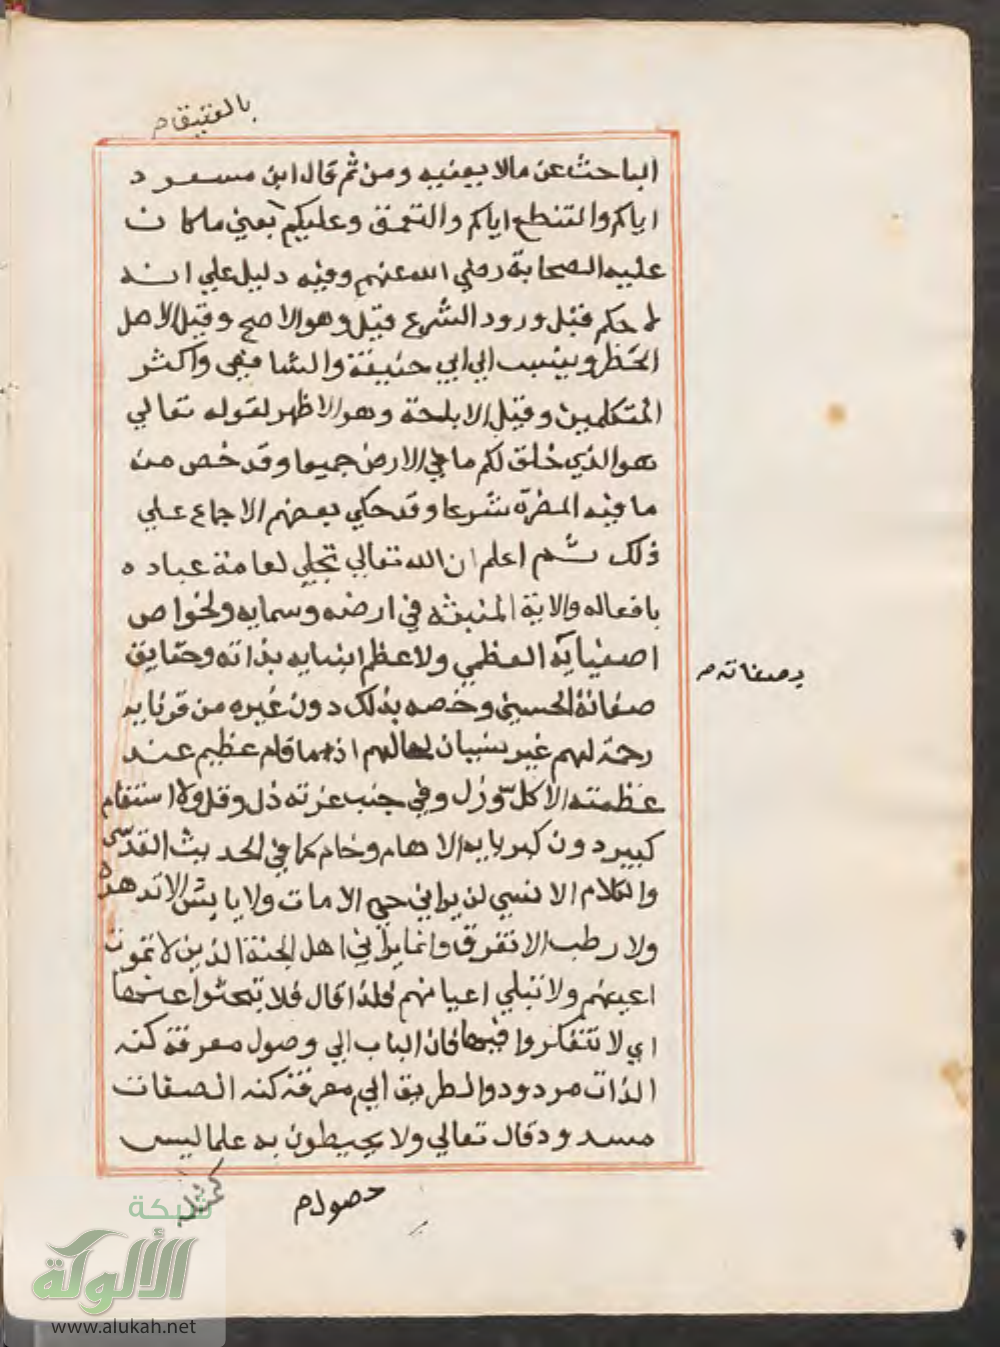 بالعتيق م
الباحث عن مالا يعنيه ومن ثم قال ابن مسعود
اياكم والتنطع اياكم والتعمق وعليكم بعني ماكان
عليه الصحابة رضي الله عنهم وفيه دليل علي انه
لا حكم قبل ورود الشرع قيل وهو الاصح وقيل الاصل
الحظر وينسب الي ابي حنيفة والشافعي واكثر
المتكلمين وقيل الاباحة وهو الاظهر لقوله تعالي
هو الذي خلق لكم ما في الارض جميعا وقد خص منه
ما فيه المضرة شرعا وقد حكي بعضهم الاجماع علي
ذلك ثم اعلم ان الله تعالي تجلي لعامة عباده
بافعاله والاية المنبثه في ارضه وسمايه ولخواص
اصفيايه العظمي ولاعظم انبيايه بذاته وحقايق
صفاته الحسني وخصه بذلك دون غيره من قرنايه
رحمة لهم غير نسيان لحالهم اذ ما قام عظيم عند
عظمته الا كل وزل وفي جنب عزته ذل وقل ولا استقام
كبير دون كبريايه الا هام وخام كما في الحديث القدسي
والكلام الانسي لن يراني حي الا مات ولا يابس الا تدهده
ولا رطب الا تفرق وانما يراني اهل الجنة الذين لا تموت
اعينهم ولا تبلي اعيانهم فلذا قال فلا تبحثوا عنها
اي لا تتفكروا فيها فان الباب الي وصول معرفة كنه
الذات مردود والطريق الي معرفة كنه الصفات
مسدود قال تعالي ولا يحيطون به علما ليس
بصفاته م
حصول م
كمثله
شبكة
الألوكة
www.alukah.net